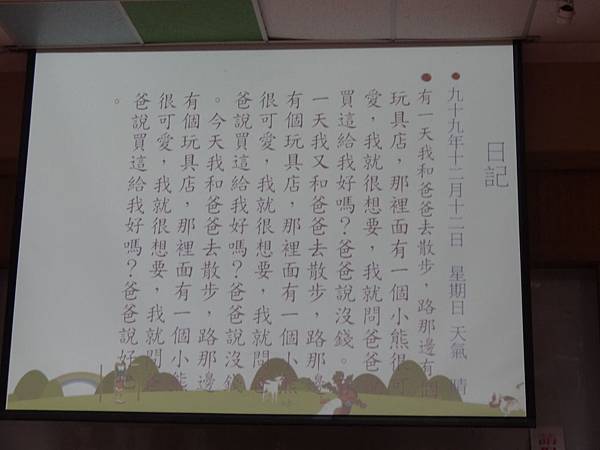 日記
九十九年十二月十二日 星期日 天氣 晴
有一天我和爸爸去散步，路那邊有個
玩具店，那裡面有一個小熊很可
愛，我就很想要，我就問爸爸
買這給我好嗎？爸爸說沒錢。
一天我又和爸爸去散步，路那邊
有個玩具店，那裡面有一個小
很可愛，我就很想要，我就問
爸說買這給我好嗎？爸爸說沒錢
。今天我和爸爸去散步，路那邊
有個玩具店，那裡面有一個小熊
很可愛，我就很想要，我就問
爸說買這給我好嗎？爸爸說好
。